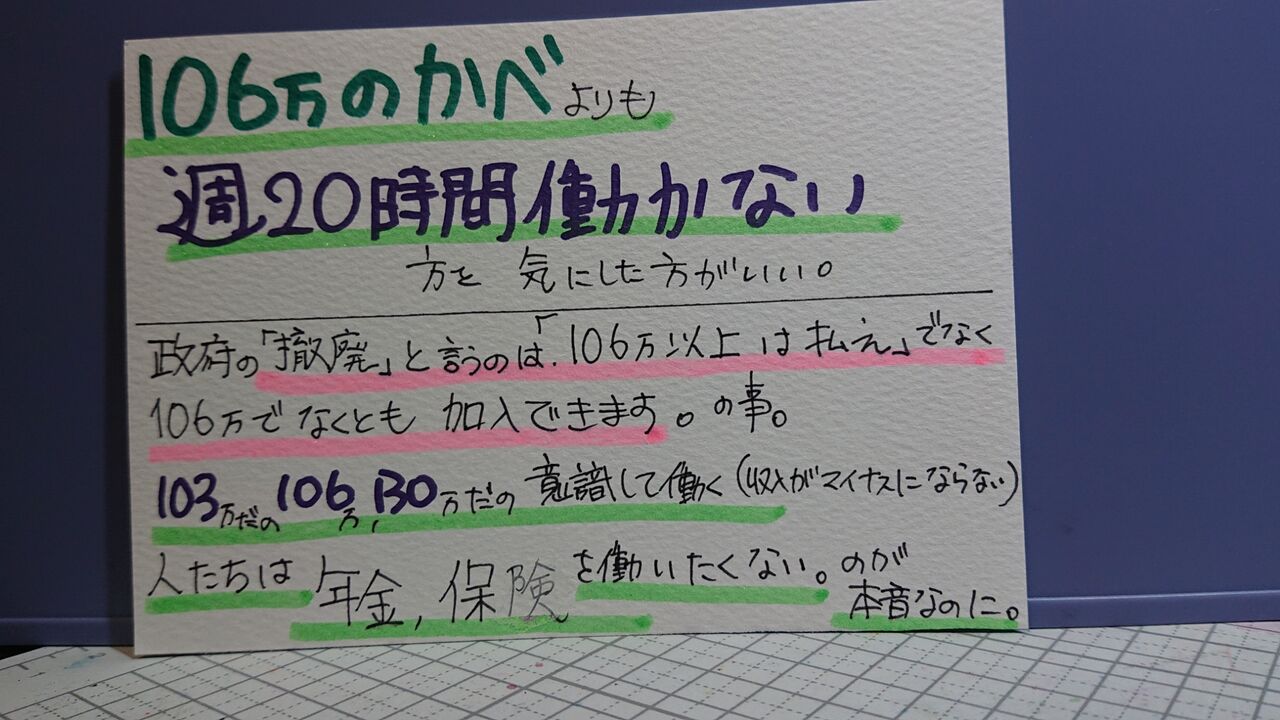 106万のかべよりも
週20時間働かない
方を気にした方がいい。
政府の「撤廃」と言うのは.「106万以上は払え」でなく
106万でなくとも加入できます。の事。
103万だの106万,130万だの意識して働く(収入がマイナスにならない)
人たちは年金,保険を働いたくない。のが
本音なのに。